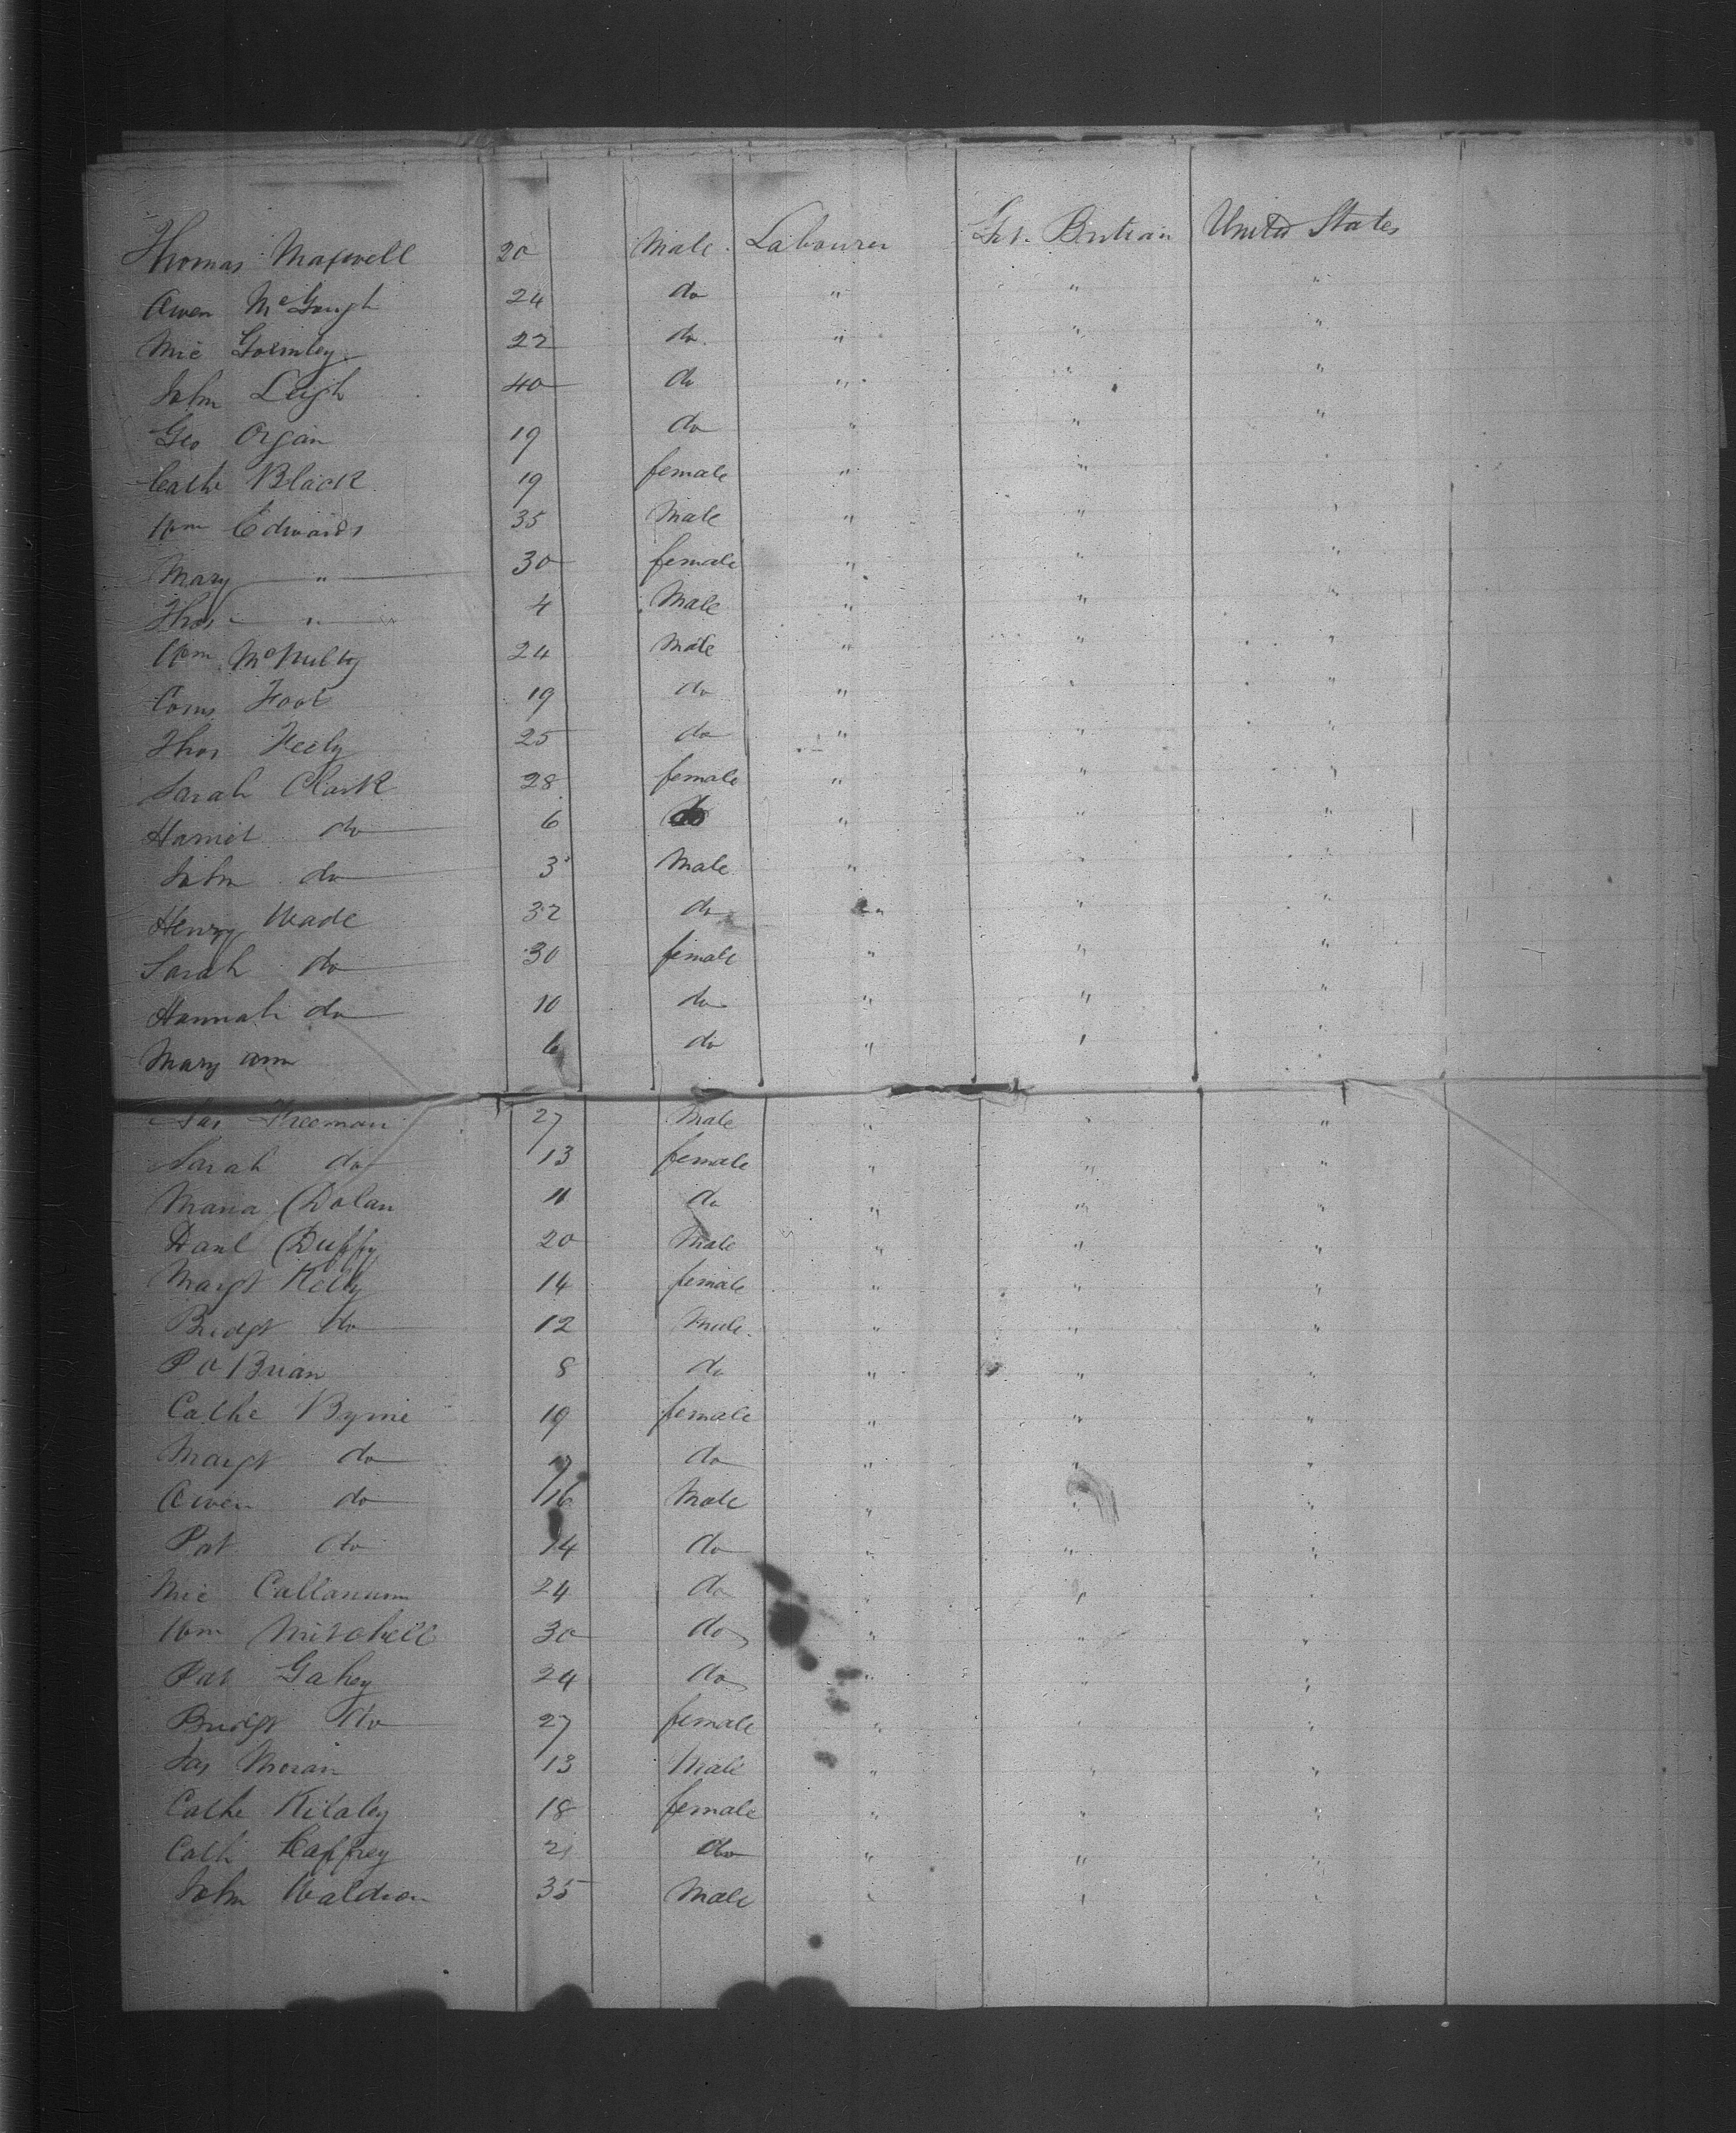 Thomas Maxwell 20 Male Labourer Gt. Britian United States
Owen McGough 24 do " " "
Mic Gormley 22 do " " "
John Leigh 40 do " " "
Geo Organ 19 do " " "
Cathe Black 19 female " " "
Wm Edwards 35 Male " " "
Mary " 30 female " " "
Thos " 4 Male " " "
Wm McNulty 24 Male " " "
Corns Foot 19 do " " "
Thos Feely 25 do " " "
Sarah Clark 28 female " " "
Harriet do 6 do " " "
John do 3 Male " " "
Henry Wade 32 do " " "
Sarah do 30 female " " "
Hannah do 10 do " " "
Mary ann 6 do " " "
Jas Freeman 27 Male " " "
Sarah do 13 female " " "
Maria Dolan 11 do " " "
Danl Duffy 20 Male " " "
Margt Kelly 14 female " " "
Bridgt do 12 Male " " "
P O Brian 8 do " " "
Cathe Byrne 19 female " " "
Margt do do " " "
Owen do 16 Male " " "
Pat do 14 do " " "
Mic 24 do " " "
Wm Mitchell 30 do " " "
Pat Gahey 24 do " " "
Bridgt do 27 female " " "
Jas Moran 13 Male " " "
Cathe 18 female " " "
Cath Caffrey 21 do " " "
John Waldron 35 Male " " "